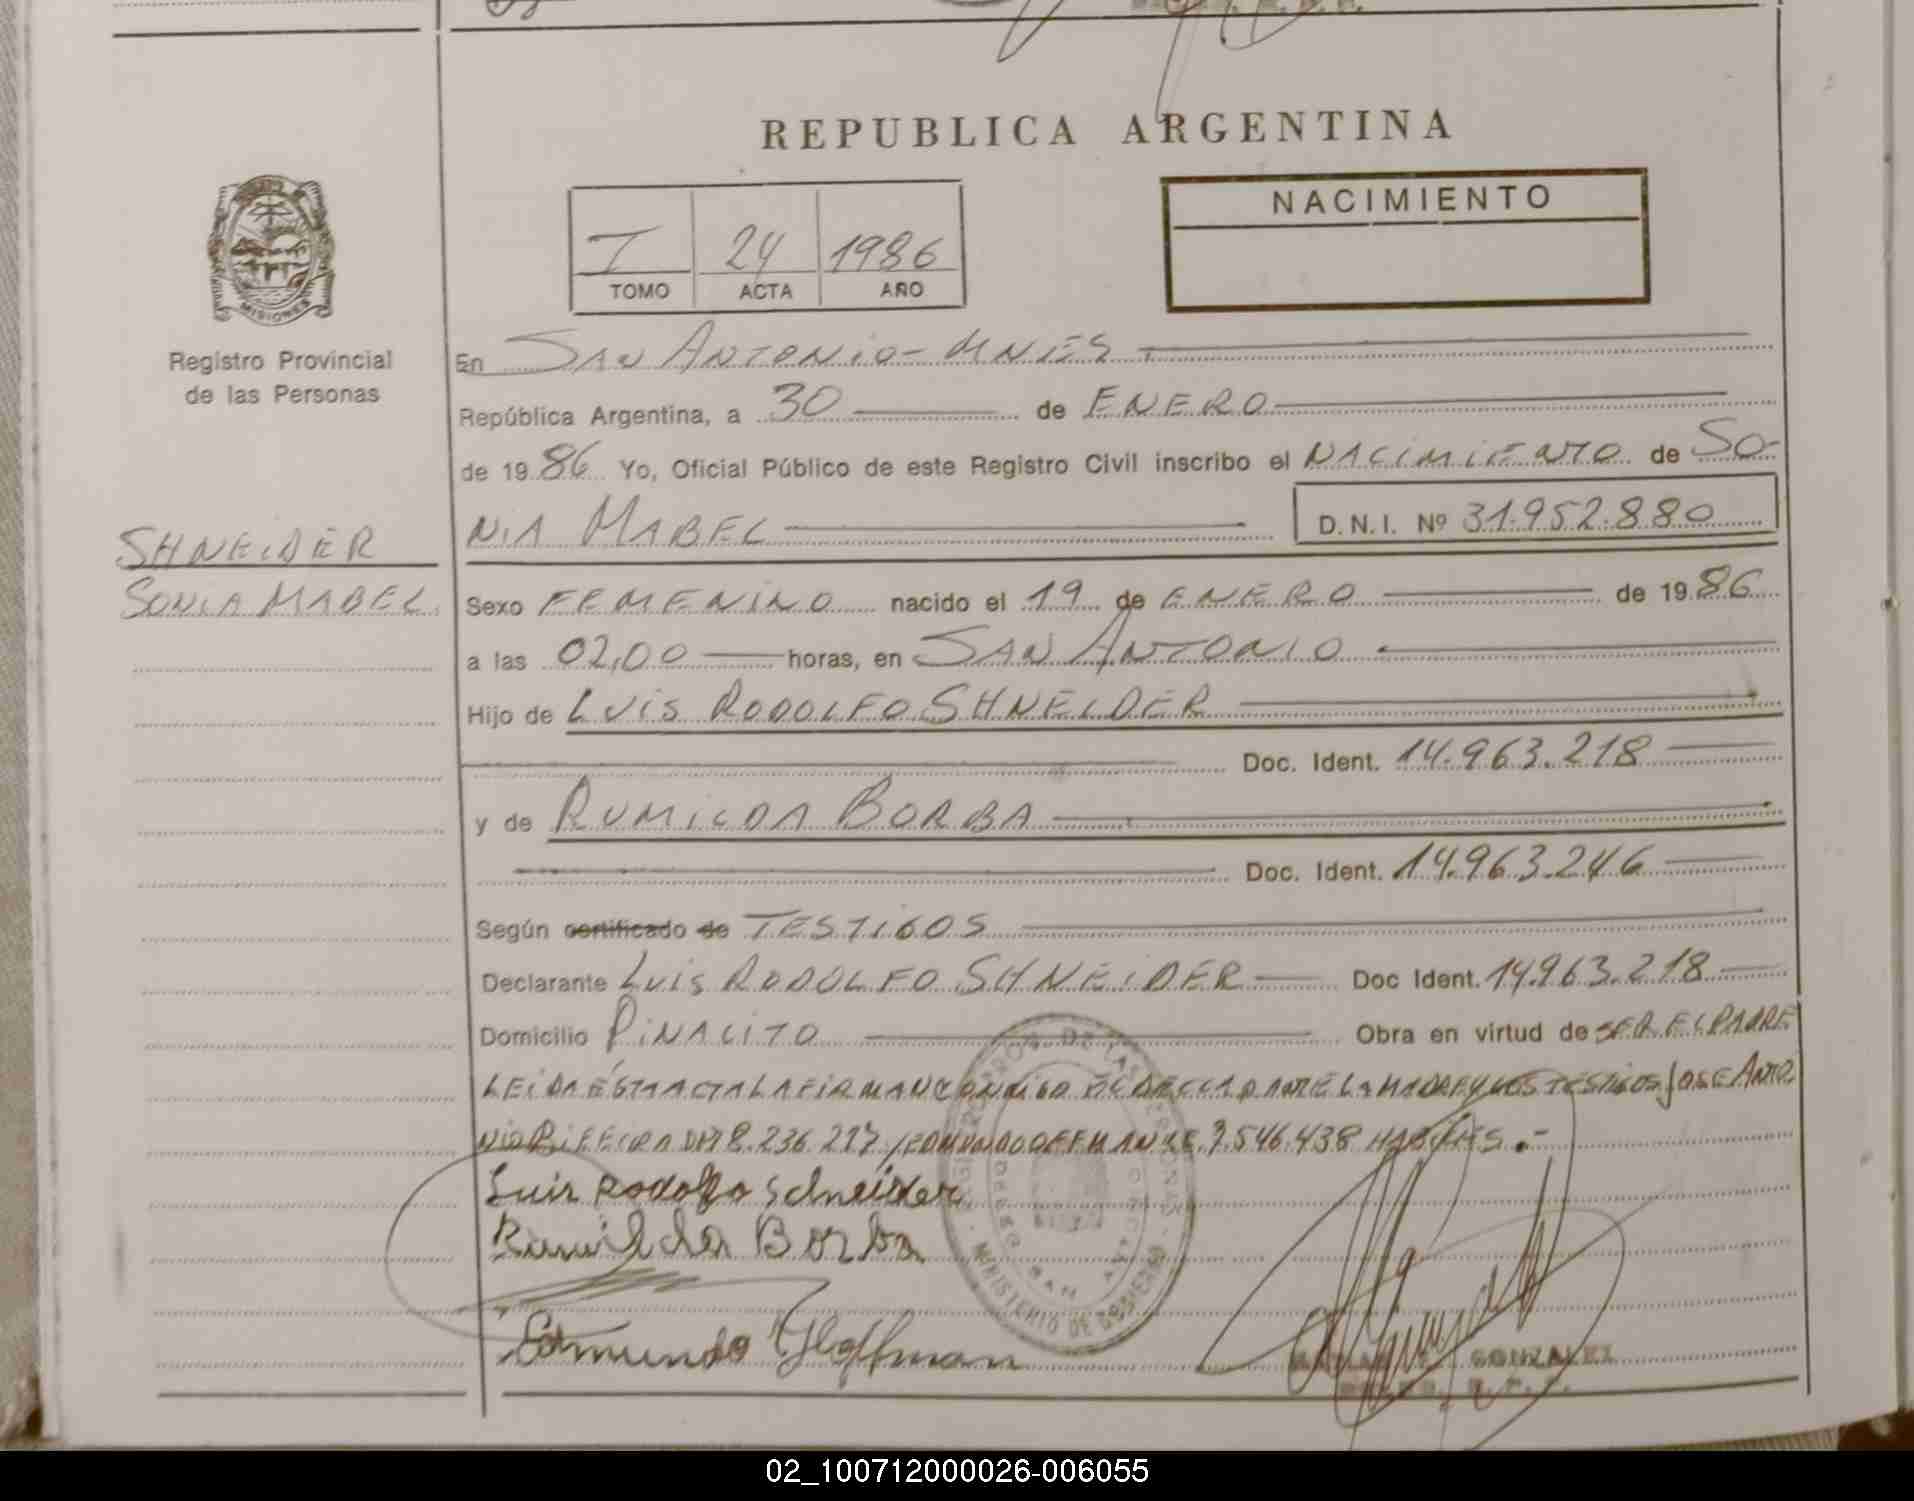 REPUBLICA ARGENTINA
NACIMIENTO
I 24 1986
TOMO ACTA AÑO
MISIONES
Registro Provincial
de las Personas
SHNEIDER
SONIA MABEL
En SAN ANTONIO - MNES
República Argentina, a 30 de ENERO
de 1986 Yo, Oficial Público de este Registro Civil inscribo el NACIMIENTO de SO-
NIA MABEL D.N.I. Nº 31.952.880
Sexo FEMENINO nacido el 19 de ENERO de 1986
a las 02,00 horas, en SAN ANTONIO
Hijo de LUIS RODOLFO SHNEIDER
Doc. Ident. 14.963.218
y de RUMILDA BORBA
Doc. Ident. 14.963.246
Según certificado de TESTIGOS
Declarante LUIS RODOLFO SHNEIDER Doc Ident. 14.963.218
Domicilio PIÑALITO Obra en virtud de SER EL PADRE
LEIDA ÉSTA ACTA LA FIRMAN CONMIGO EL DECLARANTE LA MADRE Y LOS TESTIGOS JOSE ANTO
NIO 8.236.217 / EDMUNDO 7.546.438 HABILES.-
Luis Rodolfo Schneider
Rumilda Borba
Edmundo Hoffman
MINISTERIO DE GOBIERNO
GONZALEZ
02_100712000026-006055